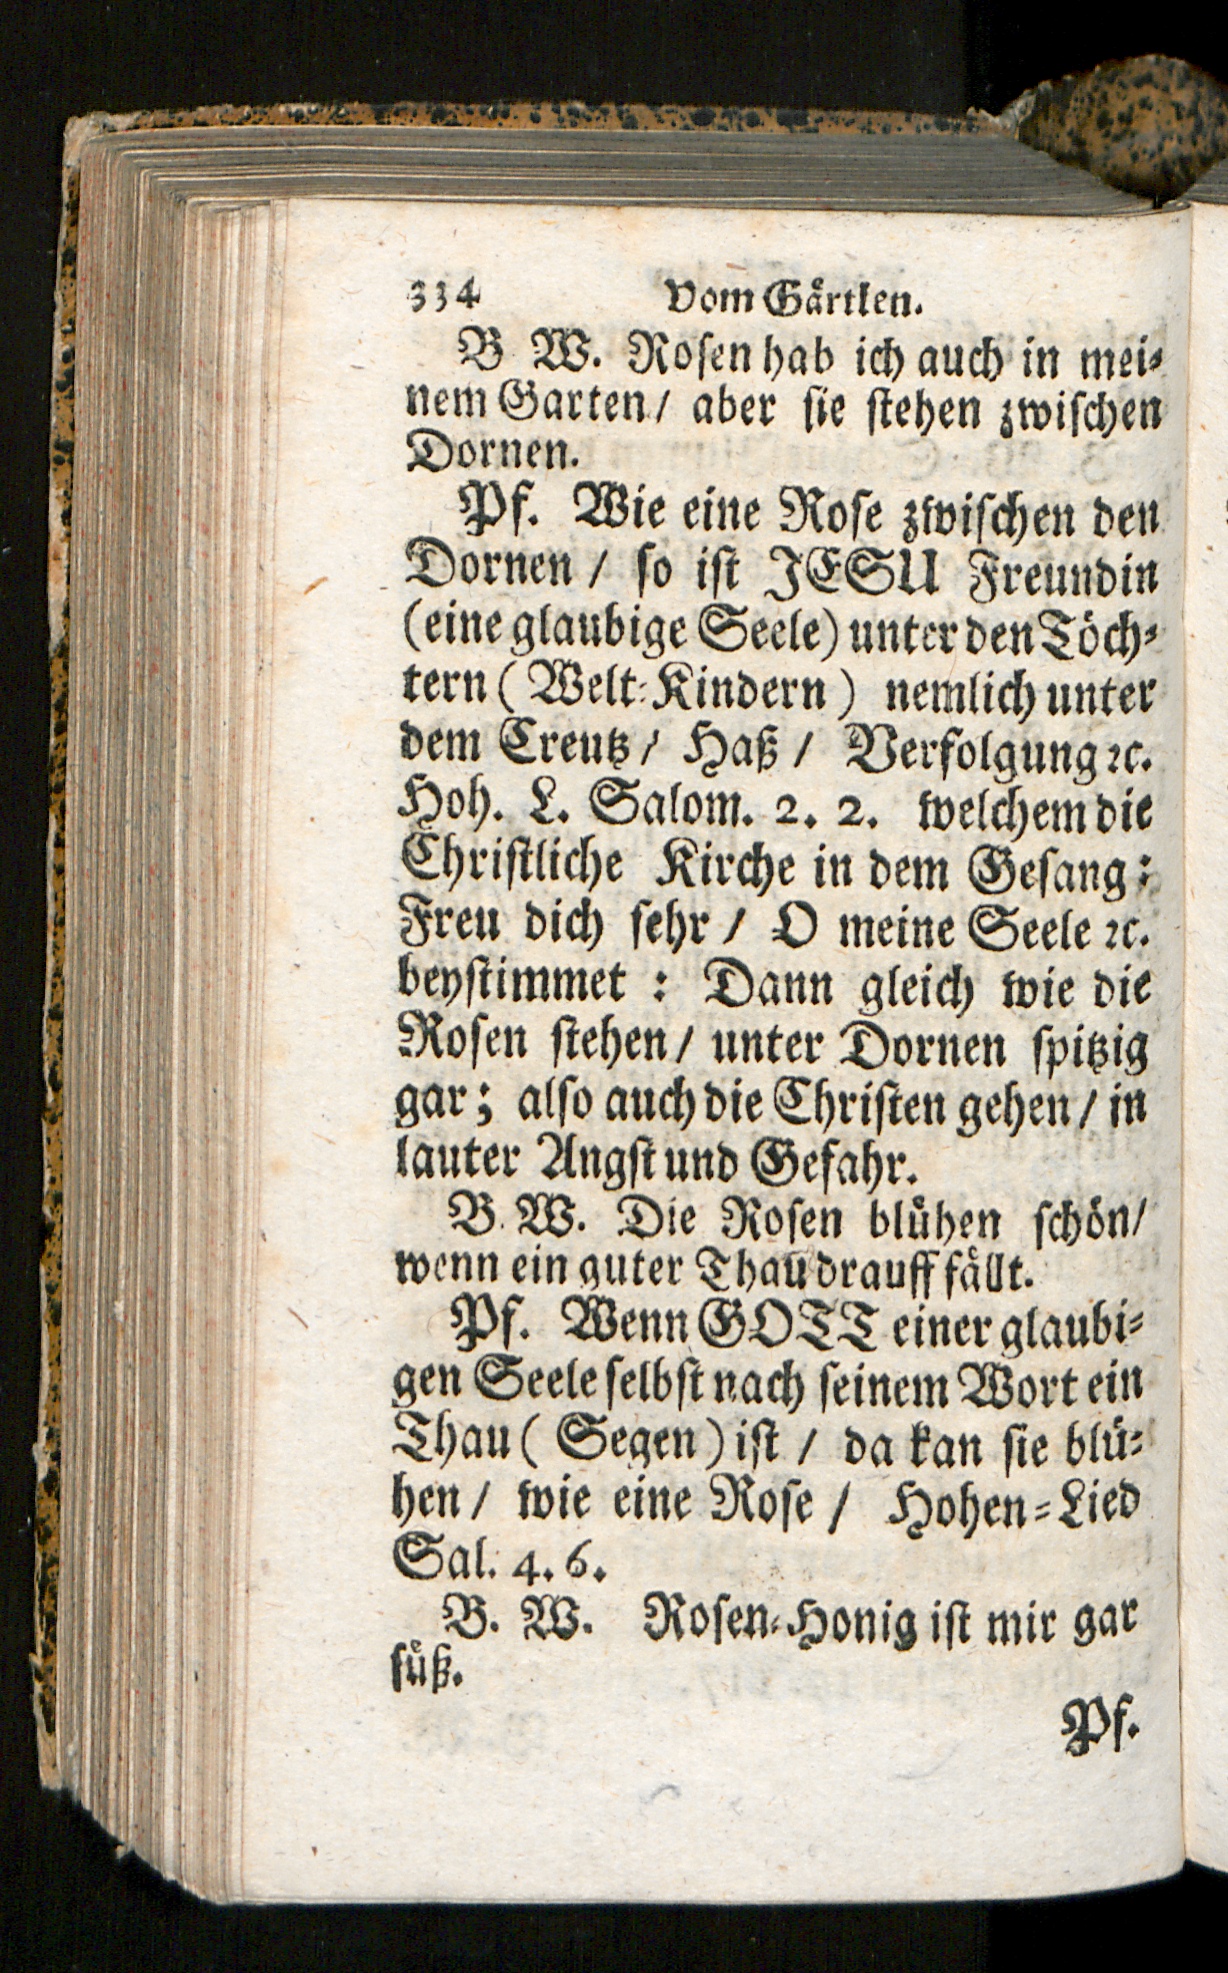 334 Vom Gaͤrtlen.
B W. Roſen hab ich auch in mei⸗
nem Garten / aber ſie ſtehen zwiſchen
Dornen.
Pf. Wie eine Roſe zwiſchen den
Dornen / ſo iſt JESU Freundin
(eine glaubige Seele) unter den Toͤch⸗
tern ( Welt⸗Kindern ) nemlich unter
dem Creutz / Haß / Verfolgung ꝛc.
Hoh. L. Salom. 2. 2. welchem die
Chriſtliche Kirche in dem Geſang:
Freu dich ſehr / O meine Seele ꝛc.
beyſtimmet : Dann gleich wie die
Roſen ſtehen / unter Dornen ſpitzig
gar; alſo auch die Chriſten gehen / in
lauter Angſt und Gefahr.
B. W. Die Roſen bluͤhen ſchoͤn /
wenn ein guter Thau drauff faͤllt.
Pf. Wenn GOTT einer glaubi⸗
gen Seele ſelbſt nach ſeinem Wort ein
Thau ( Segen ) iſt / da kan ſie bluͤ⸗
hen / wie eine Roſe / Hohen⸗Lied
Sal. 4. 6.
B. W. Roſen⸗Honig iſt mir gar
ſuͤß.
Pf.